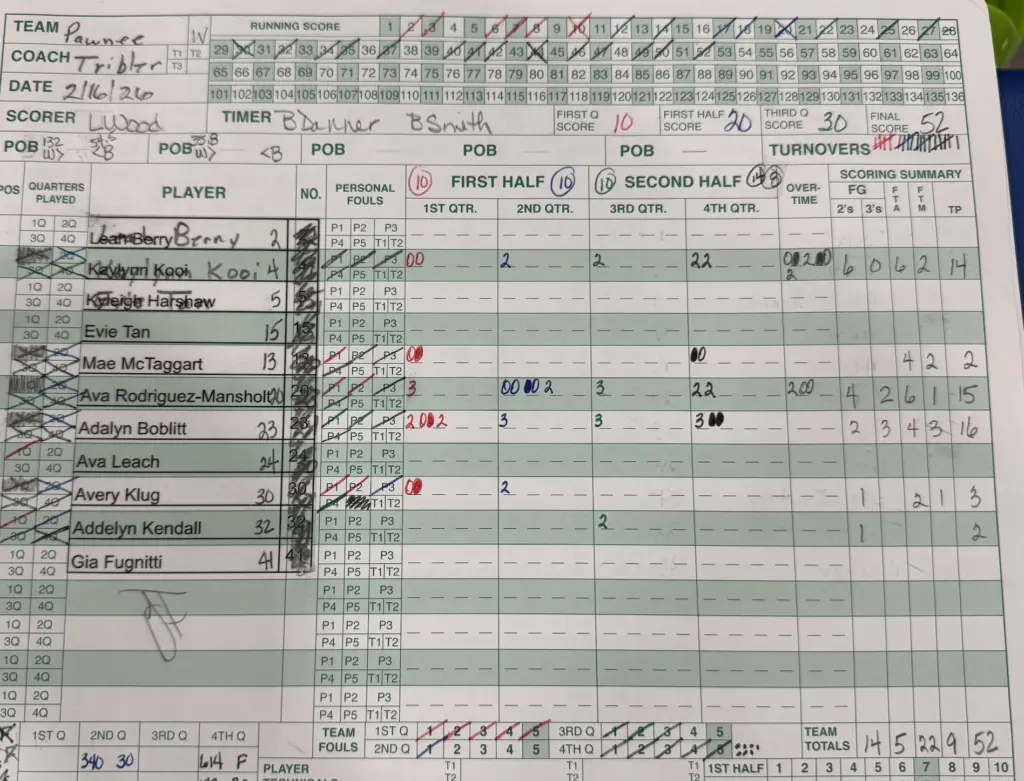 TEAM Pawnee IV RUNNING SCORE 1 2 3 4 5 6 7 8 9 10 11 12 13 14 15 16 17 18 19 20 21 22 23 24 25 26 27 28
29 30 31 32 33 34 35 36 37 38 39 40 41 42 43 44 45 46 47 48 49 50 51 52 53 54 55 56 57 58 59 60 61 62 63 64
COACH Tribler T1 T2 T3
65 66 67 68 69 70 71 72 73 74 75 76 77 78 79 80 81 82 83 84 85 86 87 88 89 90 91 92 93 94 95 96 97 98 99 100
DATE 2/16/26 101 102 103 104 105 106 107 108 109 110 111 112 113 114 115 116 117 118 119 120 121 122 123 124 125 126 127 128 129 130 131 132 133 134 135 136
SCORER LWood TIMER B Danner B Smith FIRST Q SCORE 10 FIRST HALF SCORE 20 THIRD Q SCORE 30 FINAL SCORE 52
POB <B POB <B POB — POB — POB — TURNOVERS
POS QUARTERS PLAYED PLAYER NO. PERSONAL FOULS 10 FIRST HALF 10 10 SECOND HALF OVER-TIME SCORING SUMMARY
1ST QTR. 2ND QTR. 3RD QTR. 4TH QTR. FG 2's 3's FTA FTM TP
1Q 2Q 3Q 4Q Leah Berry Berry 2 P1 P2 P3 P4 P5 T1 T2
Kaylynn Kooi Kooi 4 P1 P2 P3 P4 P5 T1 T2 00 2 2 22 6 0 6 2 14
1Q 2Q 3Q 4Q Kyleigh Harshaw 5 P1 P2 P3 P4 P5 T1 T2
1Q 2Q 3Q 4Q Evie Tan 15 15 P1 P2 P3 P4 P5 T1 T2
Mae McTaggart 13 P1 P2 P3 P4 P5 T1 T2 00 00 4 2 2
Ava Rodriguez-Mansholt 20 20 P1 P2 P3 P4 P5 T1 T2 3 00 00 2 3 22 200 4 2 6 1 15
Adalyn Boblitt 23 23 P1 P2 P3 P4 P5 T1 T2 2 00 2 3 3 3 00 2 3 4 3 16
1Q 2Q 3Q 4Q Ava Leach 24 24 P1 P2 P3 P4 P5 T1 T2
Avery Klug 30 30 P1 P2 P3 P4 T1 T2 00 2 1 2 1 3
1Q 2Q 3Q 4Q Addelyn Kendall 32 32 P1 P2 P3 P4 P5 T1 T2 2 1 2
1Q 2Q 3Q 4Q Gia Fugnitti 41 41 P1 P2 P3 P4 P5 T1 T2
1Q 2Q 3Q 4Q P1 P2 P3 P4 P5 T1 T2
1Q 2Q 3Q 4Q P1 P2 P3 P4 P5 T1 T2
1Q 2Q 3Q 4Q P1 P2 P3 P4 P5 T1 T2
1Q 2Q 3Q 4Q P1 P2 P3 P4 P5 T1 T2
1ST Q 2ND Q 3RD Q 4TH Q TEAM FOULS 1ST Q 1 2 3 4 5 3RD Q 1 2 3 4 5 TEAM TOTALS 14 5 22 9 52
340 30 614 F 2ND Q 1 2 3 4 5 4TH Q 1 2 3 4 5
PLAYER T1 T1 T1 1ST HALF 1 2 3 4 5 6 7 8 9 10
TECHNICALS T2 T2 T2